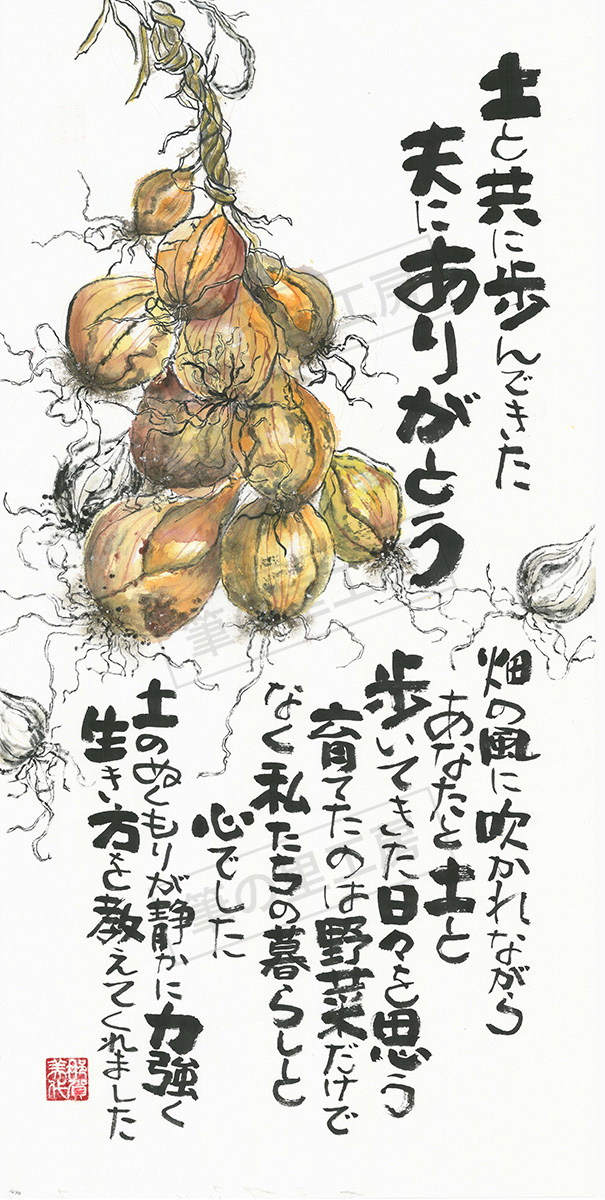 土と共に歩んできた
夫にありがとう
畑の風に吹かれながら
あなたと土と
歩いてきた日々を思う
育てたのは野菜だけで
なく私たちの暮らしと
心でした
土のぬくもりが静かに力強く
生き方を教えてくれました
筆の里工房
筆の里工房
工房